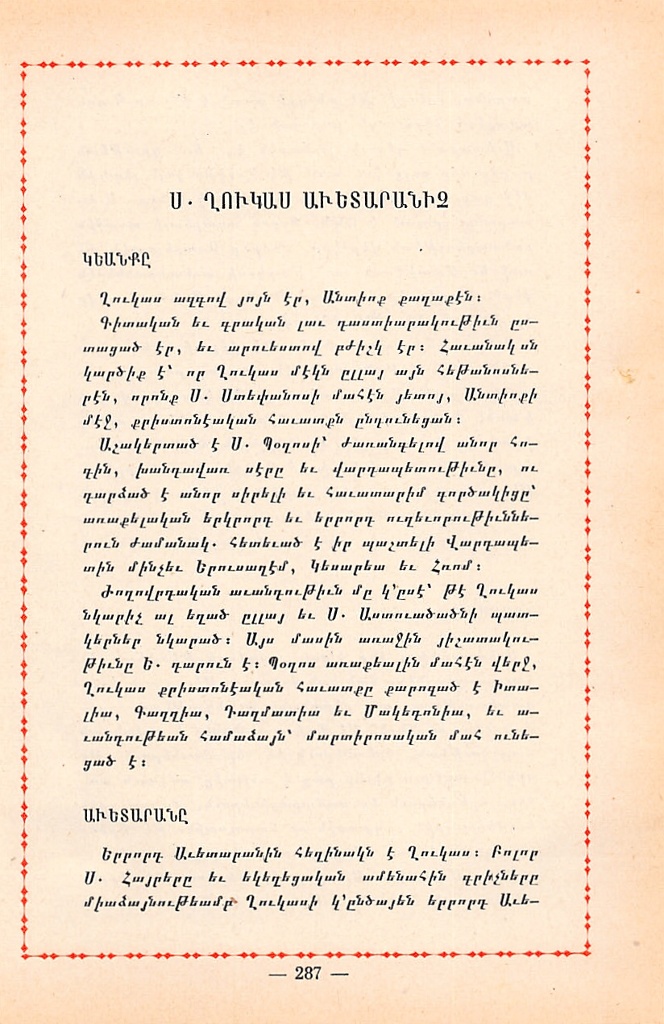 Ս․ ՂՈՒԿԱՍ ԱՒԵՏԱՐԱՆԻՉ
ԿԵԱՆՔԸ
Ղուկաս ազգով յոյն էր, Անտիոք քաղաքէն։
Գիտական եւ գրական լաւ դաստիարակութիւն ըս-
տացած էր, եւ արուեստով բժիշկ էր։ Հաւանական
կարծիք է՝ որ Ղուկաս մէկն ըլլայ այն հեթանոսնե-
րէն, որոնք Ս․ Ստեփանոսի մահէն յետոյ, Անտիոքի
մէջ, քրիստոնէական հաւատքն ընդունեցան։
Աշակերտած է Ս․ Պօղոսի՝ ժառանգելով անոր հո-
գին, խանդավառ սէրը եւ վարդապետութիւնը, ու
դարձած է անոր սիրելի եւ հաւատարիմ գործակիցը՝
առաքելական երկրորդ եւ երրորդ ուղեւորութիւննե-
րուն ժամանակ․ հետեւած է իր պաշտելի Վարդապե-
տին մինչեւ Երուսաղէմ, Կեսարեա եւ Հռոմ։
Ժողովրդական աւանդութիւն մը կ՚ըսէ՝ թէ Ղուկաս
նկարիչ ալ եղած ըլլայ եւ Ս․ Աստուածածնի պատ-
կերներ նկարած։ Այս մասին առաջին յիշատակու-
թիւնը Ե․ դարուն է։ Պօղոս առաքեալին մահէն վերջ,
Ղուկաս քրիստոնէական հաւատքը քարոզած է Իտա-
լիա, Գաղղիա, Դաղմատիա եւ Մակեդոնիա, եւ ա-
ւանդութեան համաձայն՝ մարտիրոսական մահ ունե-
ցած է։
ԱՒԵՏԱՐԱՆԸ
Երրորդ Աւետարանին հեղինակն է Ղուկաս։ Բոլոր
Ս․ Հայրերը եւ եկեղեցական ամենահին գրիչները
միաձայնութեամբ Ղուկասի կ՚ընծայեն երրորդ Աւե-
— 287 —